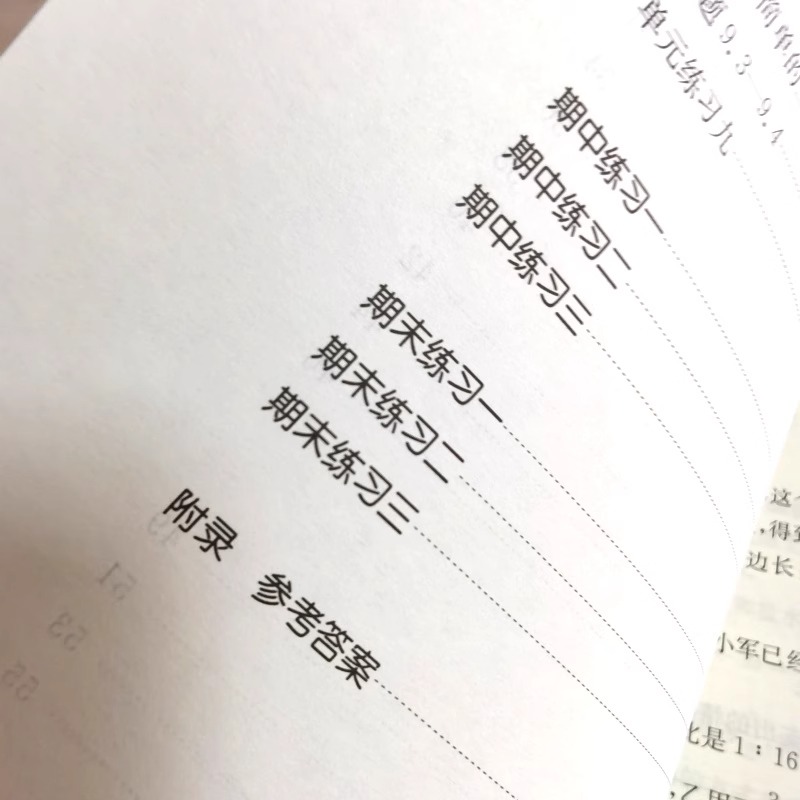 简单的
题9.3—9.4
单元练习九
期中练习一
期中练习二
期中练习三
期末练习一
期末练习二
期末练习三
附录 参考答案
这
,得到
边长
小军已经
比是1∶16